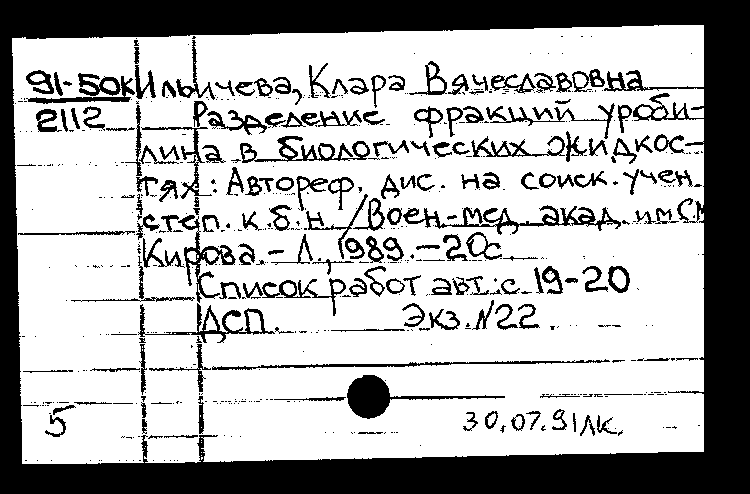 91-50к Ильичева, Клара Вячеславовна
2112 Разделение фракций уроби-
лина в биологических жидкос-
тях: Автореф. дис. на соиск. учен.
степ. к.б.н. / Воен.-мед. акад. им СМ
Кирова. - Л., 1989. - 20с.
Список работ авт.: с. 19-20
ДСП. Экз. №22.
5 30.07.91 ЛК.